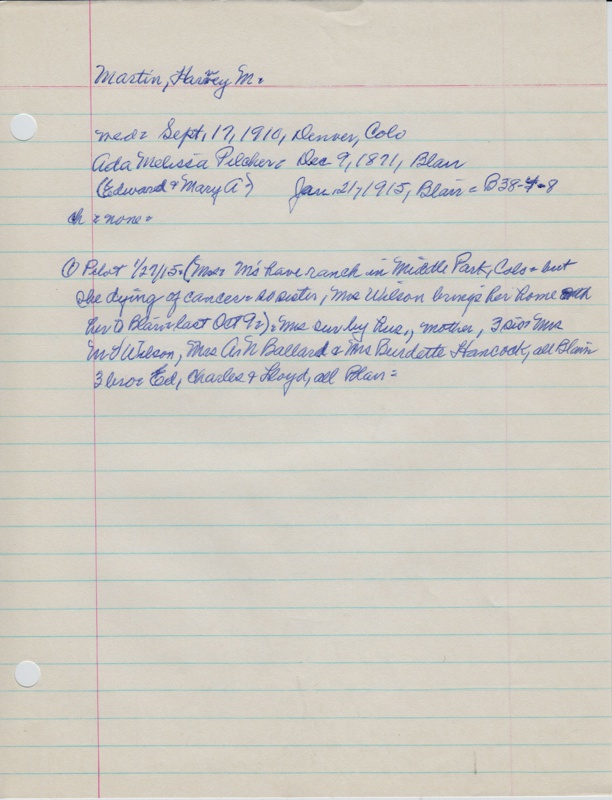 Martin, Harvey M.
med = Sept, 17, 1910, Denver, Colo
Ada Melissa Pilcher = Dec 9, 1871, Blair
(Edward & Mary A =) Jan 21, 1915, Blair = B38-4-8
ch = none =
① Pilot 1/27/15 = (Mr & M's have ranch in Middle Park, Colo = but
she dying of cancer = so sister, Mrs Wilson brings her home with
her to Blair = last Oct 9 =) = Mrs surv by hus., mother, 3 sis = Mrs
Wilson, Mrs A N Ballard & Mrs Burdette Hancock, all Blair
3 bro = Ed, Charles & Floyd, all Blair =